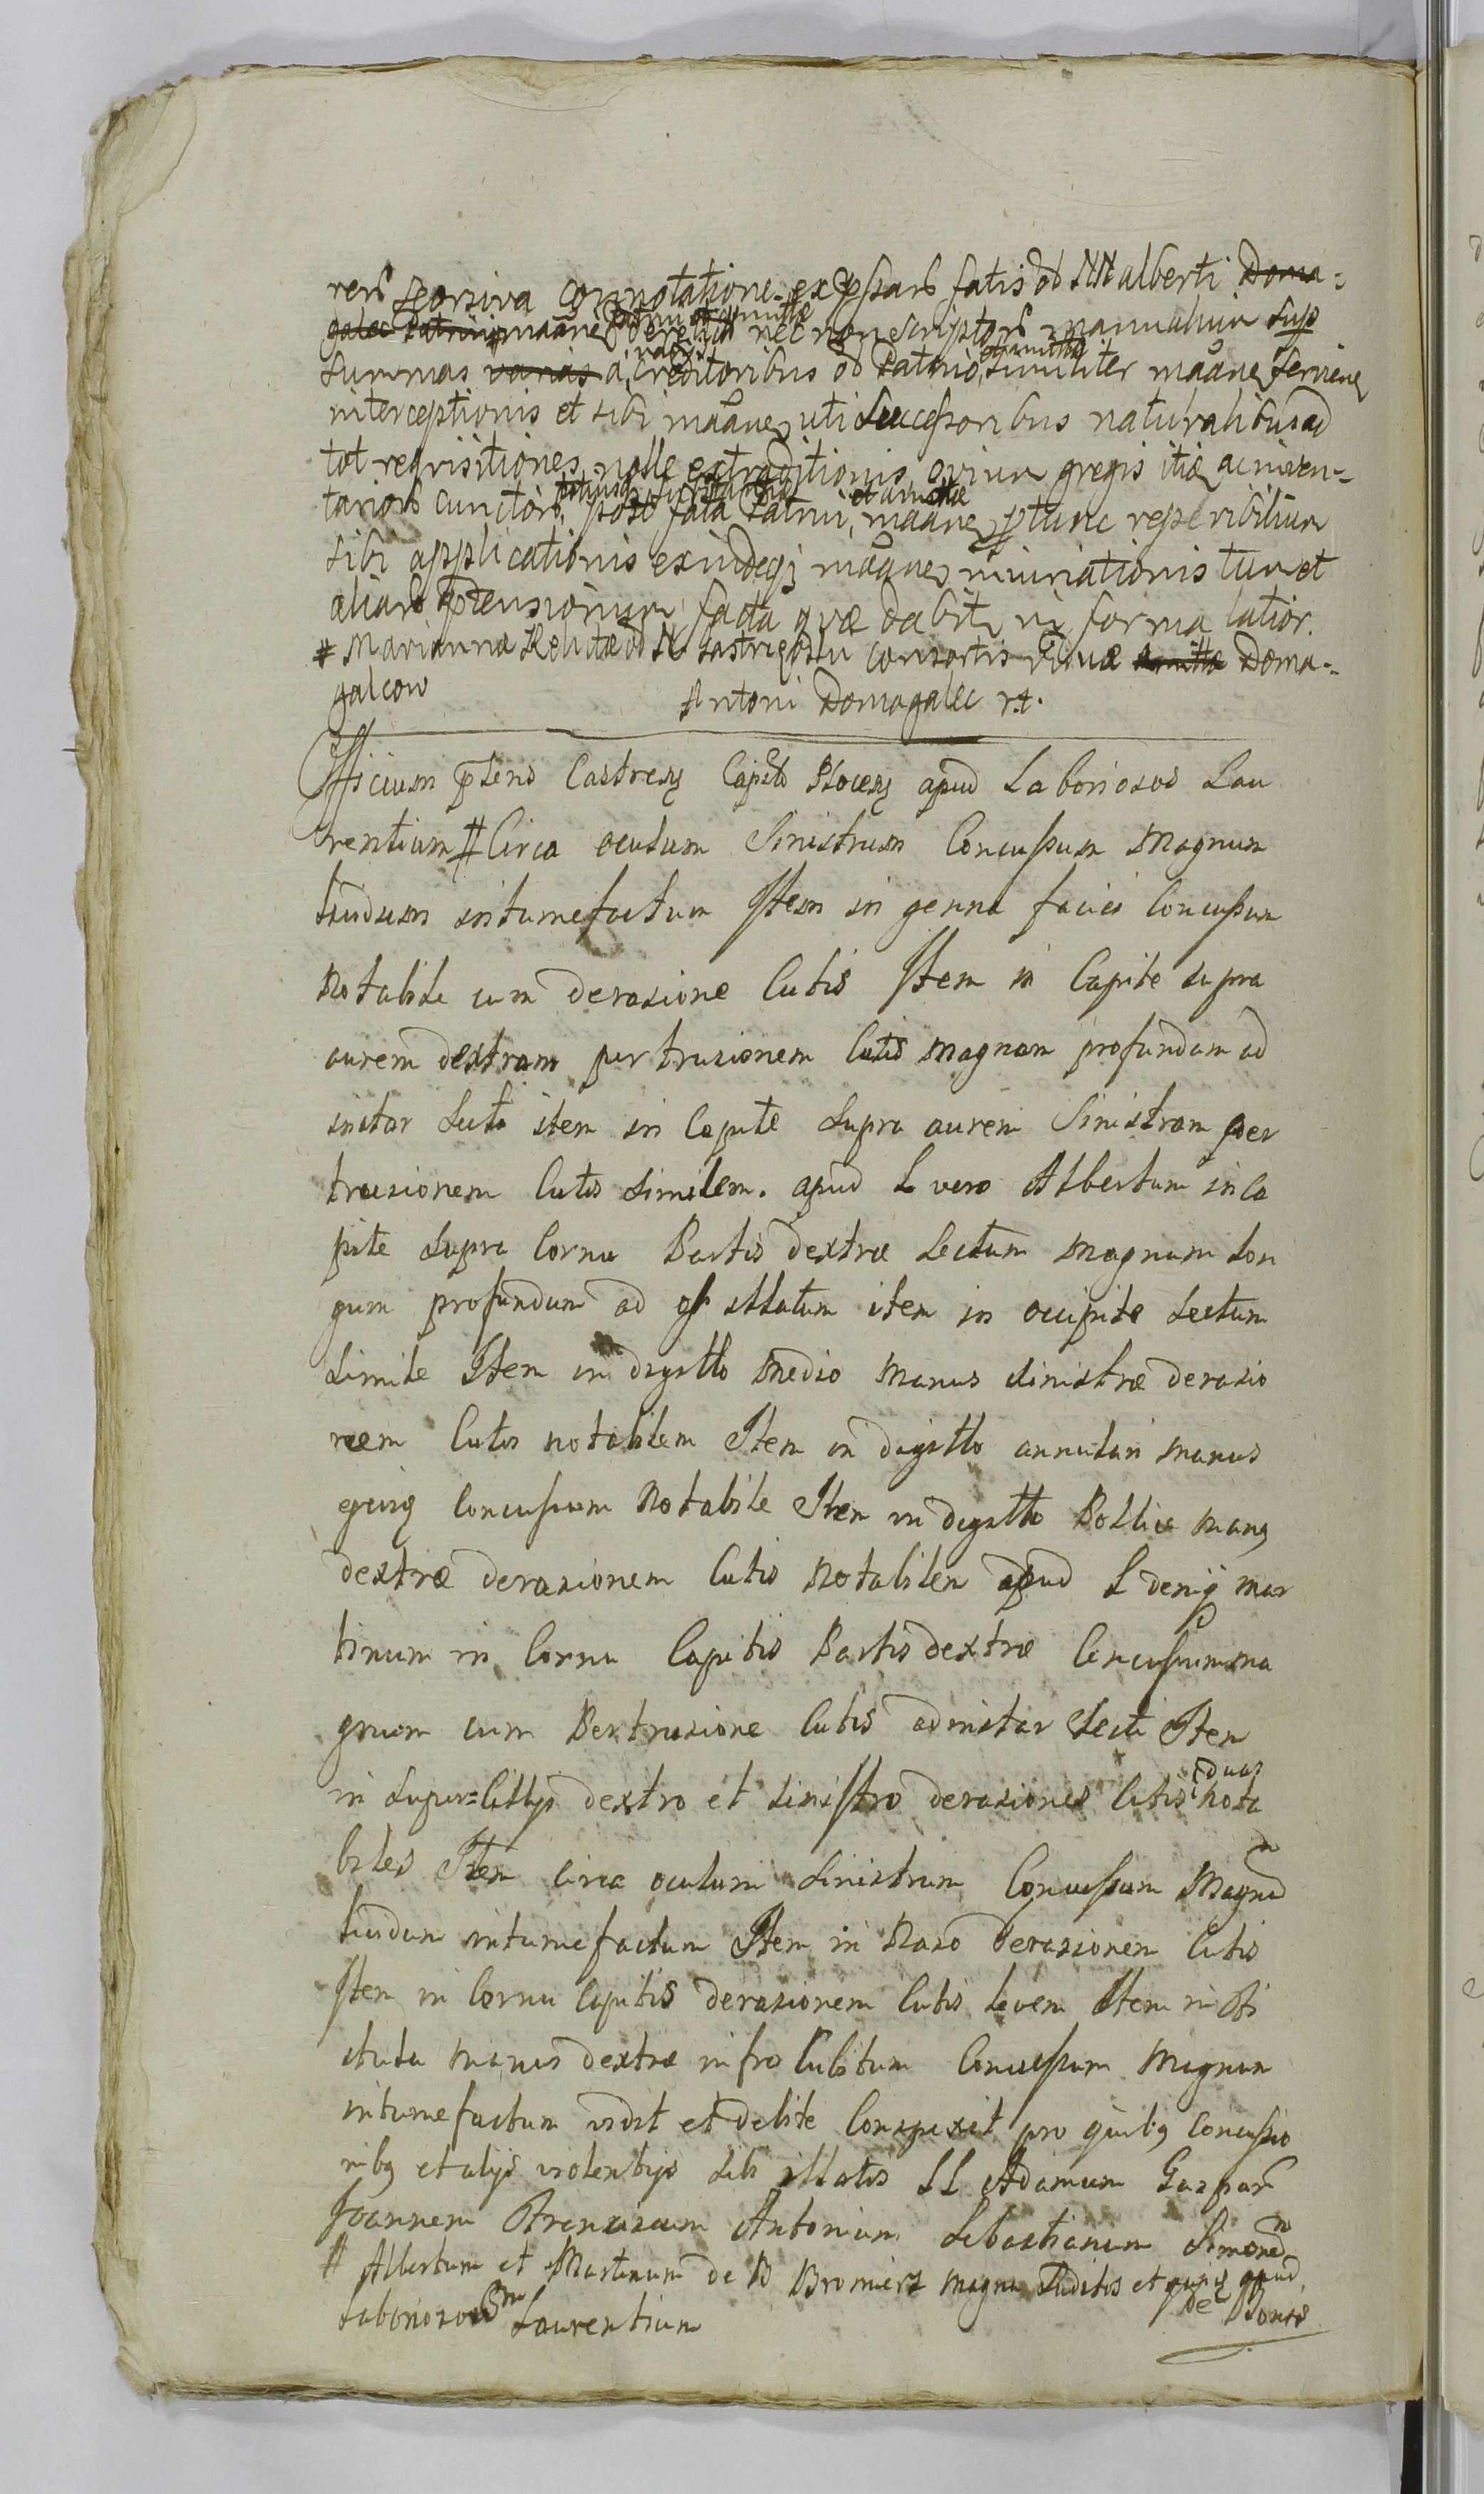 rers seorsiva connotatione expssars fatis od NN alberti Doma-
galec Patrui maane Patrui et amittae derelict nec non scriptors manualium sup
summas varias a varys creditoribus od Patrio et amitta similiter maane serviene
interceptionis et sibi maane uti successoribus naturalibus ad
tot reqvisitiones nolle extraditionis ovium gregis itq ac inven-
tariors cunctors totiusq substantiae post fata Patrui et amittae maane ptunc reperibilium
sibi applicationis exindeqz maane iniuriationis tum et
aliars ptensionum facta qvae dabit in forma latior.
# Marianna Relictae od N Sastrigosku consortis viduae amittae Doma-
galcow Antoni Domagalec r.t.
Officium psens Castrens Capit Plocens apud Laboriosos Lau
rentium # Circa oculum Sinistrum Concussum Magnum
lividum intumefactum Item in genna faciei Concussum
Notabile cum derasione Cutis Item in Capite supra
aurem dextram pertrusionem Cutis magnam profundam ad
instar Secti item in Capite Supra aurem Sinistram per
trusionem Cutis Similem. apud L vero Albertum in Ca
pite Supra Cornu Partis dextrae Sectum Magnum Lon
gum profundum ad illatum item in occipite Sectum
Simile Item in digitto Medio Manus Sinistrae derasio
nem Cutis notabilem Item in digitto annulari manus
ejusq Concussum Notabile Item in digitto Pollice manq
dextrae derasionem Cutis Notabilem apud L deniq Mar
tinum in Cornu Capitis Partis dextrae Concussum ma
gnum cum Pertrusione Cutis ad instar Secti Item
in Super=Cillijs dextro et Sinistro derasiones Cutis duas nota
biles Item Circa oculum Sinistrum Concussum Magnum
lividum intumefactum Item in Naso derasionem Cutis
Item in Cornu Capitis derasionem Cutis levem Item in fi
stula manus dextrae infra Cubitum Concussum Magnum
intumefactum vidit et debite Conspexit pro quibq concussio
nibq et alijs violentijs Sibi illatis LL Adamum Gaspar
Joannem Franciscum Antonium Sebastianum Simonem
# Albertum et Martinum de B Bromierz magna Subditos et quivis apud
Laboriosum Laurentium de Plonis